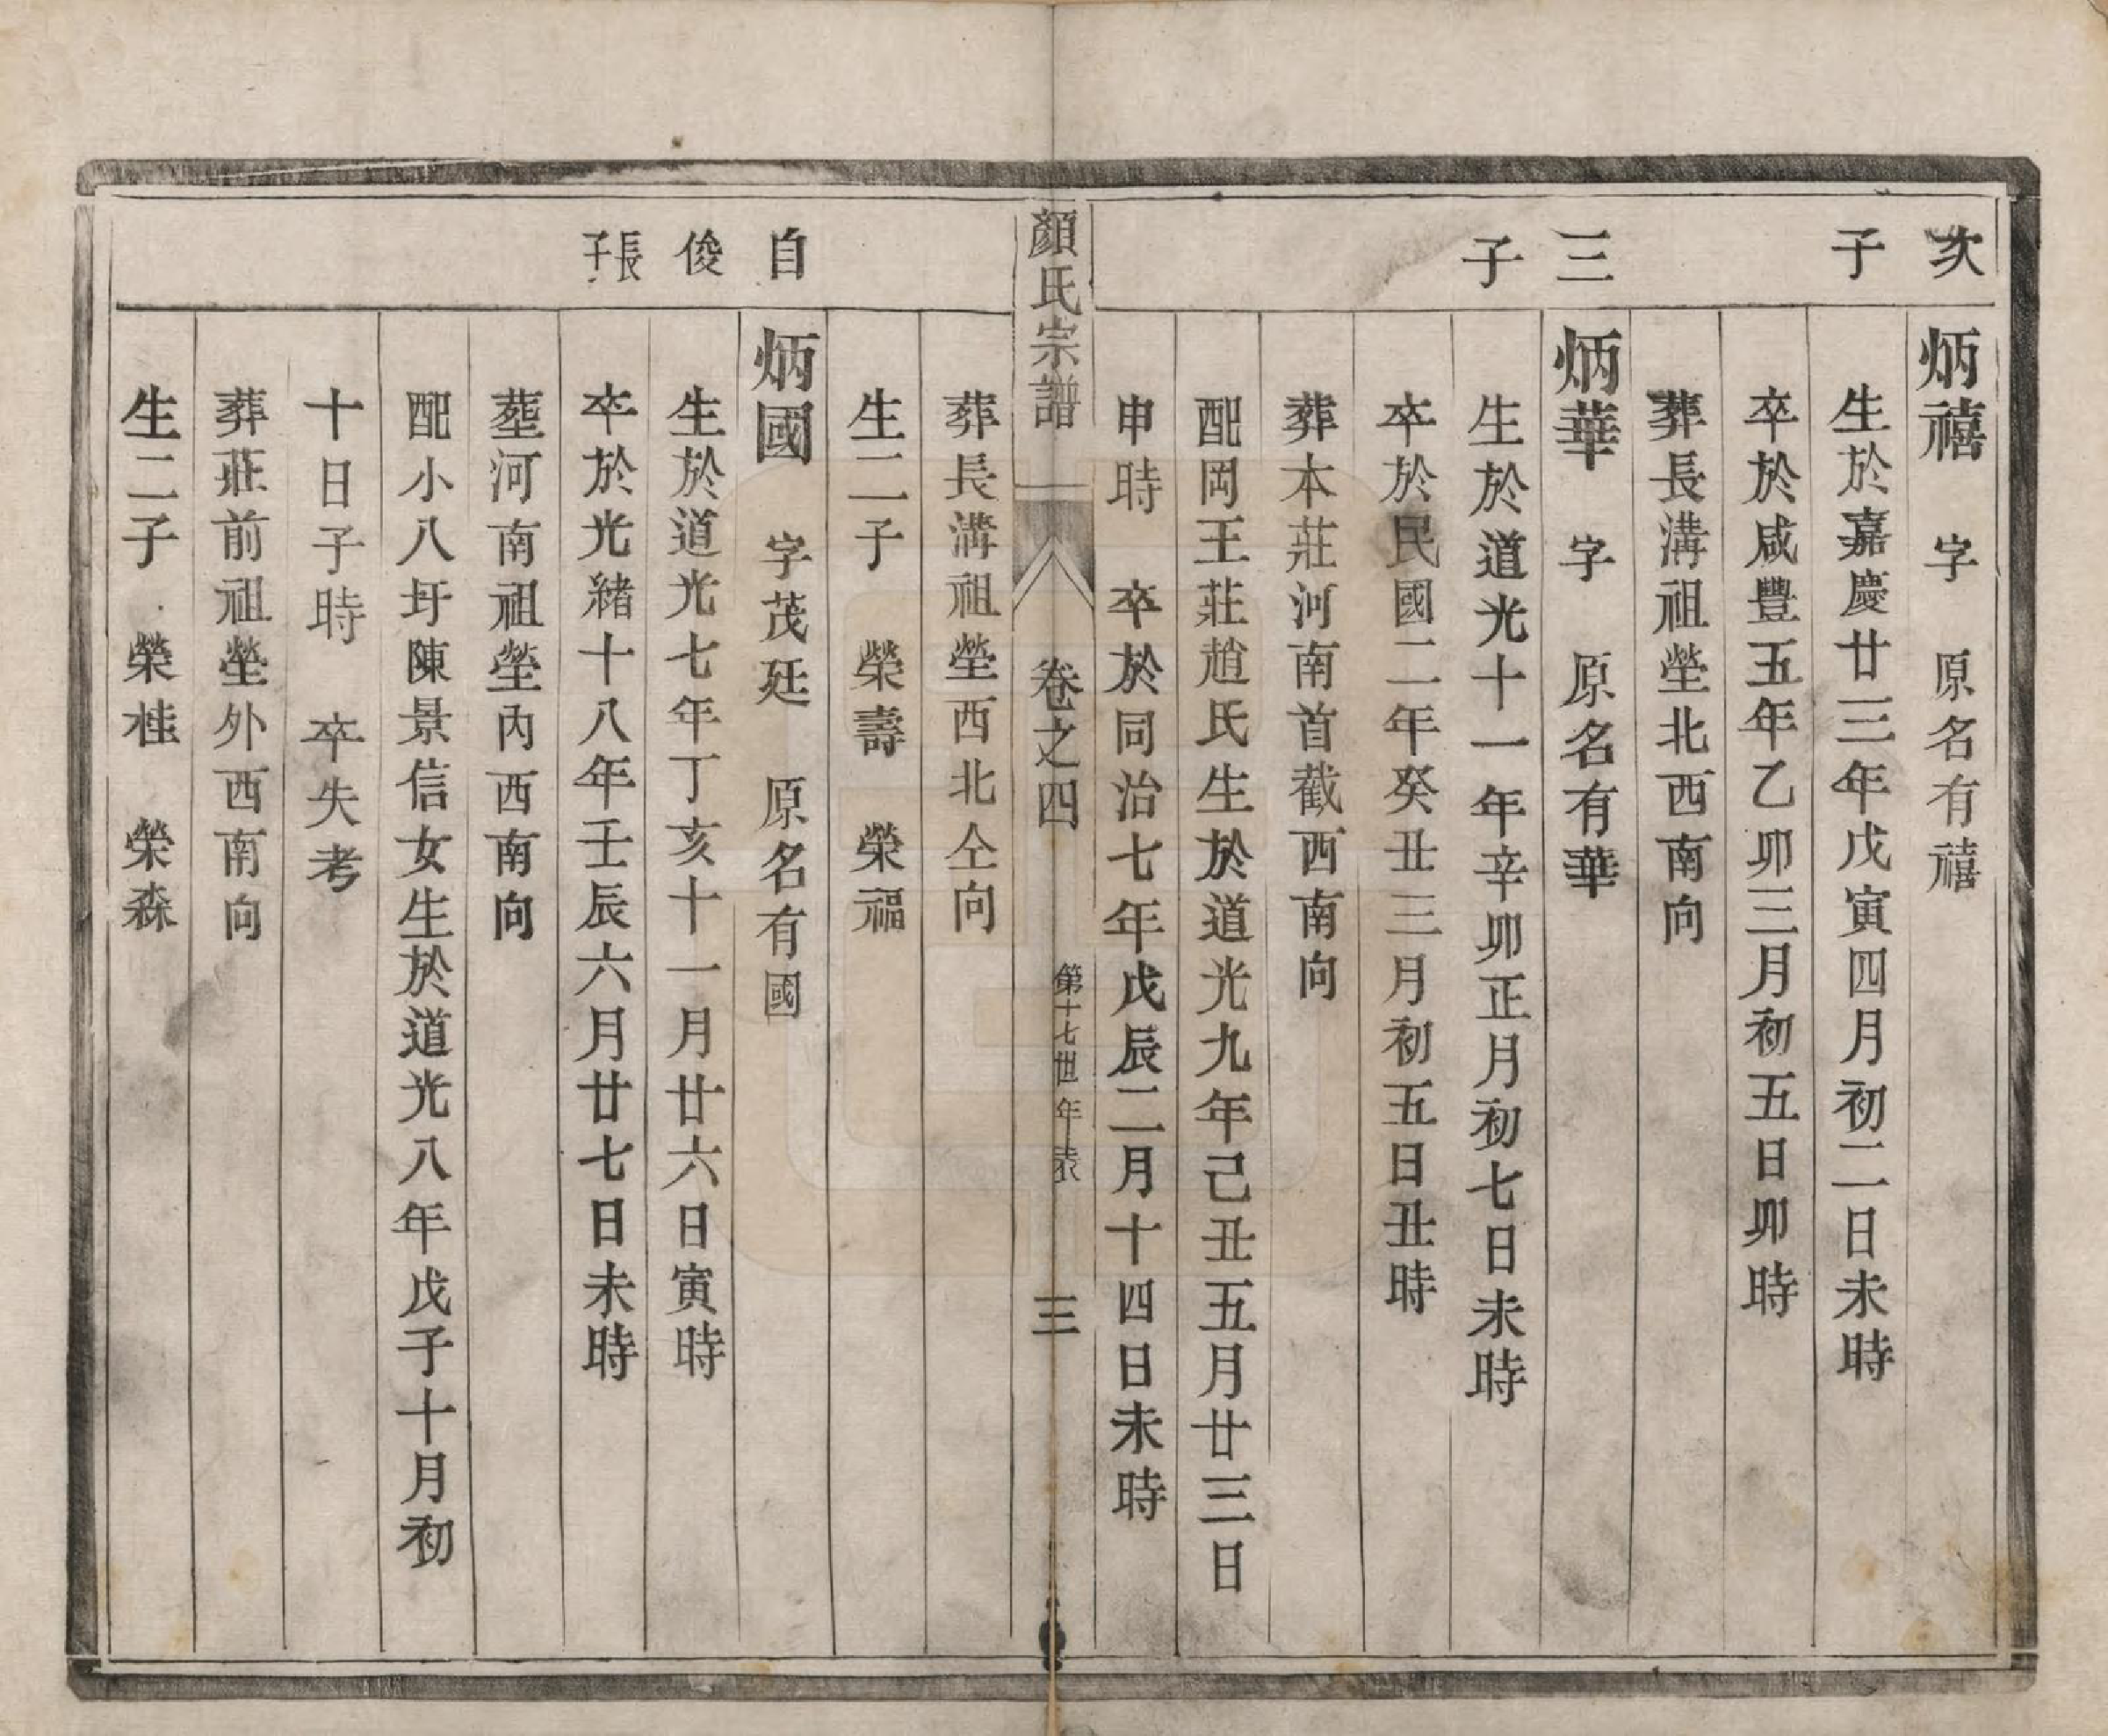 次子
炳禧 字 原名有禧
生於嘉慶廿三年戊寅四月初二日未時
卒於咸豐五年乙卯三月初五日卯時
葬長溝祖塋北西南向
三子
炳華 字 原名有華
生於道光十一年辛卯正月初七日未時
卒於民國二年癸丑三月初五日丑時
葬本莊河南首截西南向
配岡王莊趙氏生於道光九年己丑五月廿三日
申時 卒於同治七年戊辰二月十四日未時
顏氏宗譜 卷之四 第十七世年表 三
葬長溝祖塋西北仝向
生二子 榮壽 榮福
自俊長子
炳國 字茂廷 原名有國
生於道光七年丁亥十一月廿六日寅時
卒於光緒十八年壬辰六月廿七日未時
葬河南祖塋內西南向
配小八圩陳景信女生於道光八年戊子十月初
十日子時 卒失考
葬莊前祖塋外西南向
生二子 榮桂 榮森